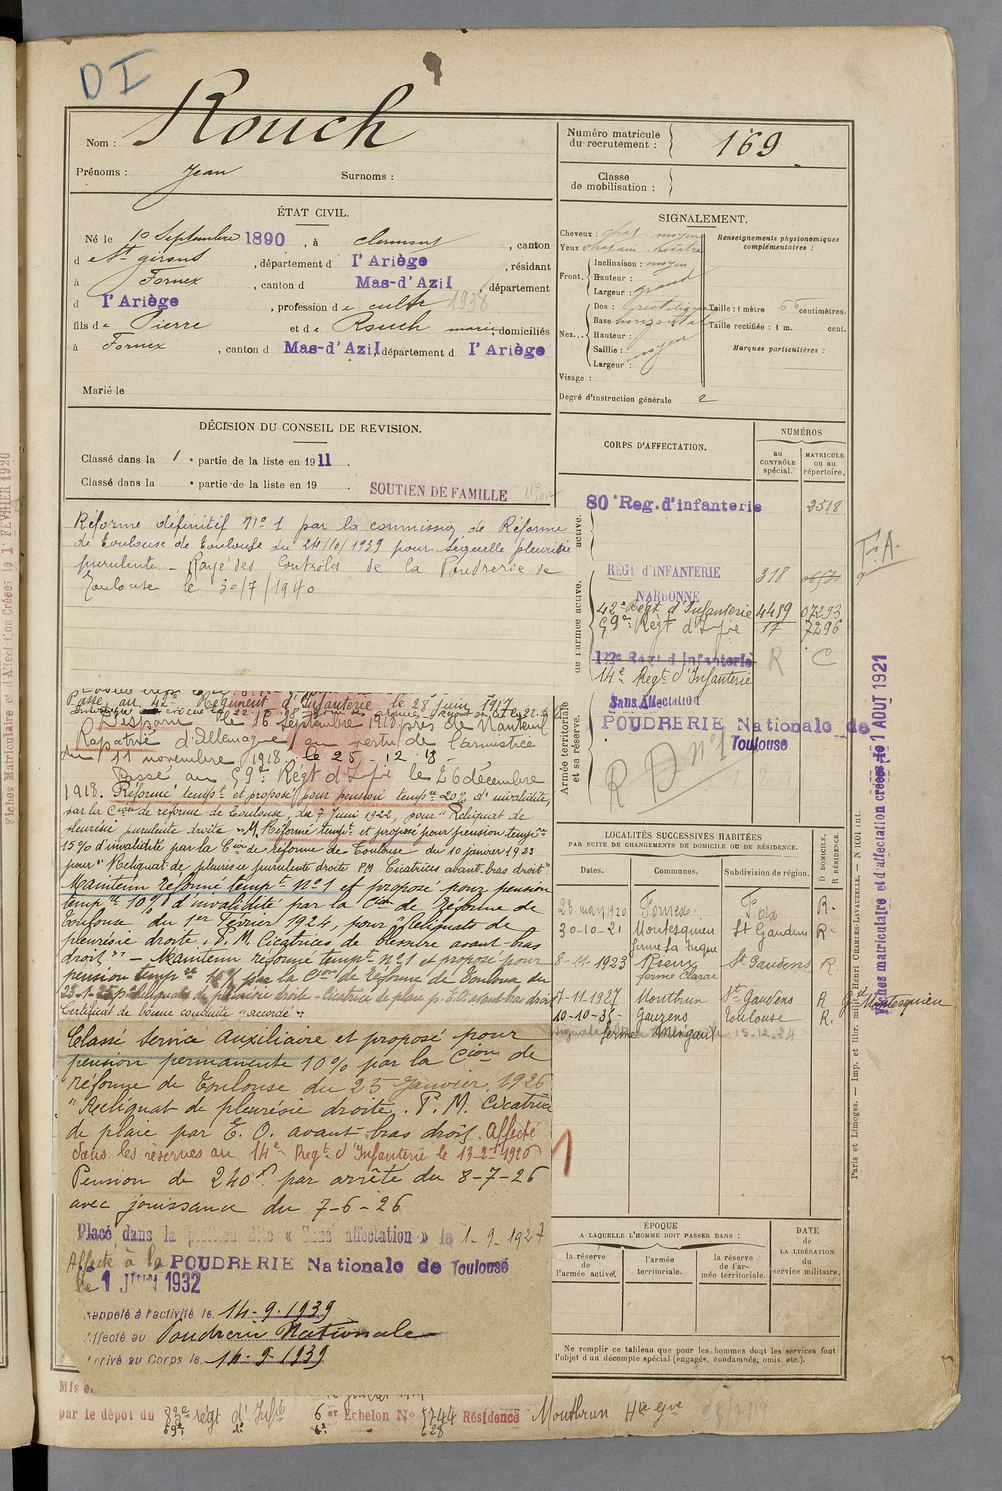 D I
Nom : Rouch
Prénoms : Jean Surnoms :
Numéro matricule du recrutement : 169
Classe de mobilisation :
ÉTAT CIVIL.
Né le 10 Septembre 1890, à Clermont, canton
d e St girons, département d l'Ariège, résidant
à Fornex, canton d Mas-d'Azil, département
d l'Ariège, profession de cultr 1938
fils de Pierre et de Rouch marie, domiciliés
à Fornex, canton d Mas-d'Azil, département d l'Ariège
Marié le
SIGNALEMENT.
Cheveux : chat. moyen
Yeux
Front. Inclinaison : moyen
Hauteur :
Largeur : grand
Nez... Dos : rectiligne
Base horizontale
Hauteur :
Saillie :
Largeur : moyen
Visage :
Degré d'instruction générale 2
Renseignements physionomiques complémentaires :
Taille : 1 mètre centimètres.
Taille rectifiée : 1 m. cent.
Marques particulières :
DÉCISION DU CONSEIL DE REVISION.
Classé dans la 1 e partie de la liste en 1911.
Classé dans la e partie de la liste en 19 .
SOUTIEN DE FAMILLE
Réforme définitif N° 1 par la commission de Réforme
de Toulouse de Toulouse du 24/10/1939 pour séquelle pleurésie
purulente. - Rayé des Contrôles de la Poudrerie de
Toulouse le 30/7/1940
Passé au 42e Régiment d'Infanterie le 28 Juin 1917
Disparu le 16 Septembre 1918 près de Nanteuil
Rapatrié d'Allemagne au vertu de l'armistice
du 11 novembre 1918 - le 25 - 12 - 18 -
Passé au 59e Régt d'Ifie le 26 décembre
1918. Réformé tempt et proposé pour pension tempre 20% d'invalidité,
par la Cion de réforme de Toulouse, du 7 Juin 1922, pour "Reliquat de
pleurésie purulente droite" M. Réformé tempt et proposé pour pension tempre
15% d'invalidité par la Cion de réforme de Toulouse du 10 janvier 1923
pour "Reliquat de pleurésie purulente droite PM Cicatrices avant-bras droit"
Maintenu réformé tempt N°1 et proposé pour pension
tempre 10% d'invalidité par la Cion de Réforme de
Toulouse du 1er Février 1924, pour "Reliquats de
pleurésie droite. P.M. Cicatrices de blessure avant-bras
droit" - Maintenu réformé tempt N°1 et proposé pour
pension tempre 10% par la Cion de Réforme de Toulouse du
Certificat de bonne conduite "accordé"
Classé service auxiliaire et proposé pour
pension permanente 10% par la Cion de
réforme de Toulouse du 25 Janvier 1926
"Reliquat de pleurésie droite. P. M. Cicatrice
de plaie par E. O. avant-bras droit. Affecté
dans les réserves au 14e Regt d'Infanterie le 13-2-1926
Pension de 240 f. par arrête du 8-7-26
avec jouissance du 7-6-26
Placé dans la position dite « Sans affectation » le 1-9-1927
Affecté à la POUDRERIE Nationale de Toulouse
le 1 JUIN 1932
Rappelé à l'activité le 14-9-1939
Affecté au Poudrerie Nationale
Arrivé au Corps le 14-9-1939
Mis e
par le dépôt du régt d'Infie 6 er Echelon No 5744 Résidence Montbrun Hte Gne
628
CORPS D'AFFECTATION.
NUMÉROS
au CONTRÔLE spécial.
MATRICULE ou au répertoire.
active.
80e Reg. d'infanterie 2518
de l'armée active.
REGT d'INFANTERIE 318
NARBONNE
42e Régt d'Infanterie 4459 07293
59e Régt d'Ifie 17 7296
122e Régt d'Infanterie R C
14e Regt d'Infanterie
Armée territoriale et sa réserve.
Sans Affectation
POUDRERIE Nationale de
Toulouse
R D n°1
F. A.
LOCALITÉS SUCCESSIVES HABITÉES
PAR SUITE DE CHANGEMENTS DE DOMICILE OU DE RÉSIDENCE.
Dates. Communes. Subdivision de région. D DOMICILE. R RÉSIDENCE.
28 mars 1920 Fornex Foix R.
30-10-21 Montesquieu St Gaudens R
8-11 1923 Rieux St Gaudens R.
7-11-1927 Montbrun St Gaudens R
10-10-35 Gauzens Toulouse R.
ferme Mingaut
ÉPOQUE
A LAQUELLE L'HOMME DOIT PASSER DANS :
la réserve de l'armée active.
l'armée territoriale.
la réserve de l'armée territoriale.
DATE DE LA LIBÉRATION du service militaire.
Ne remplir ce tableau que pour les hommes dont les services font
l'objet d'un décompte spécial (engagés, condamnés, omis, etc.).
Fiches matriculaire et d'affectation créées le 1 AOUT 1921
Paris et Limoges. — Imp. et libr. milit. Henri CHARLES-LAVAUZELLE. — N 1001 int.
Fiches Matriculaire et d'Affectation Créées le 1r FEVRIER 1920